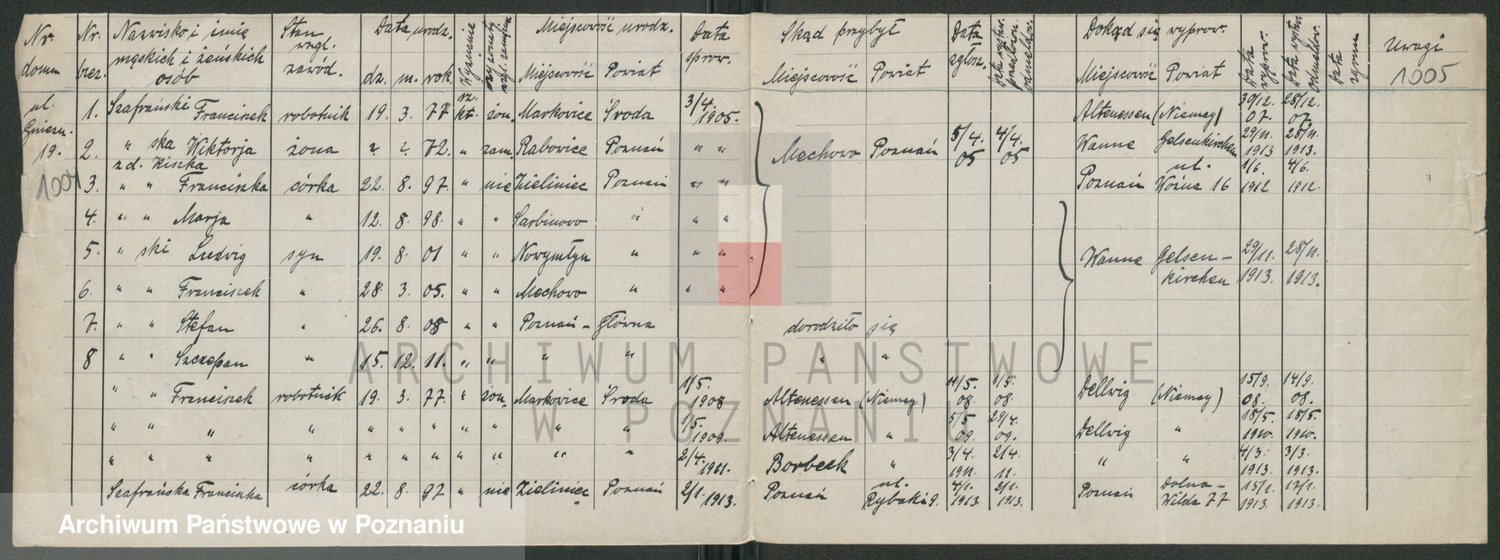 Nr. domu Nr. bież. Nazwisko i imię męskich i żeńskich osób Stan wzgl. zawód. Data urodz. dz. m. rok Wyznanie Miejscowość urodz. Miejscowość Powiat Data sprow. Skąd przybył Miejscowość Powiat Data zgłosz. Dokąd się wyprow. Miejscowość Powiat Data wyprow. Data zgonu Uwagi 1005
ul. Gniezn. 19. 1004
1. Szafrański Franciszek robotnik 19. 3. 77 rz. kt. żon. Markowice Środa 3/4. 1905. Altenessen (Niemcy) 30/12. 07 28/12. 07.
2. " ska Wiktorja żona ? ? 72. " zam. Rabowice Poznań " " Mechowo Poznań 5/4. 05 4/4. 05 Wanne Gelsenkirchen 29/11 1913 28/11. 1913.
3. " " Franciszka córka 22. 8. 97. " nie Zieliniec Poznań " " Poznań ul. Woźna 16 1/6. 1912 4/6. 1912.
4. " " Marja " 12. 8. 98. " " Sarbinowo " " "
5. " ski Ludwig syn 19. 8. 01 " " Nowymłyn " " " Wanne Gelsenkirchen 29/11. 1913. 28/11. 1913.
6. " " Franciszek " 28. 3. 05. " " Mechowo " " "
7. " " Stefan " 26. 8. 08 " " Poznań - Główna dorodziło się
8 " " Szczepan " 15. 12. 11. " " " " " "
" " Franciszek robotnik 19. 3. 77. " żon. Markowice Środa 1/5. 1908 Altenessen (Niemcy) 11/5. 08. 1/5. 08. Dellwig (Niemcy) 15/9. 08. 14/9. 08.
" " " " " " " " " " " 1/5. 1909 Altenessen " 5/5 09. 29/4. 09. Dellwig " 18/5. 1910. 18/5. 1910.
" " " " " " " " " " " 2/4. 1911. Borbeck " 3/4. 1911. 2/4. 11. " " 4/3. 1913. 3/3. 1913.
Szafrańska Franciszka córka 22. 8. 97 " nie Zieliniec Poznań 2/1. 1913. Poznań ul. Rybaki 9. 4/1. 1913 2/1. 1913. Poznań Dolna-Wilda 77 15/1. 1913. 17/1. 1913.
ARCHIWUM PAŃSTWOWE
W POZNANIU
Archiwum Państwowe w Poznaniu